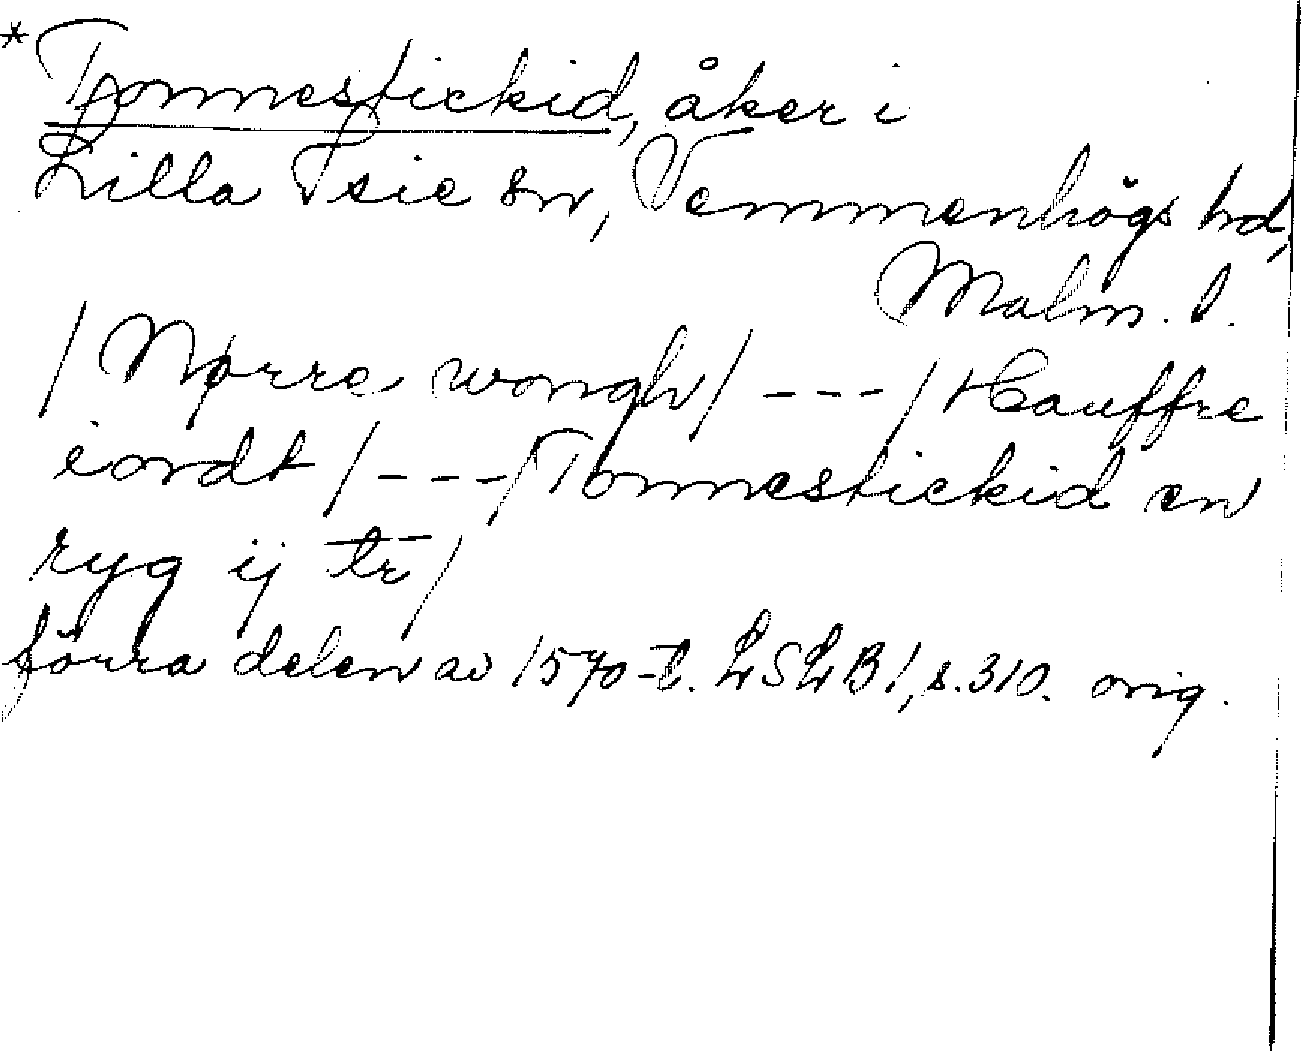 *Tonnestickid, åker i
Lilla Isie sn, Vemmenhögs hd,
Malm. l.
/Nørre wongh/ ---/Hauffre
iordt/---/Tonnestickid en
ryg ij tr/
förra delen av 1570-t. LSLB 1, s. 310. orig.